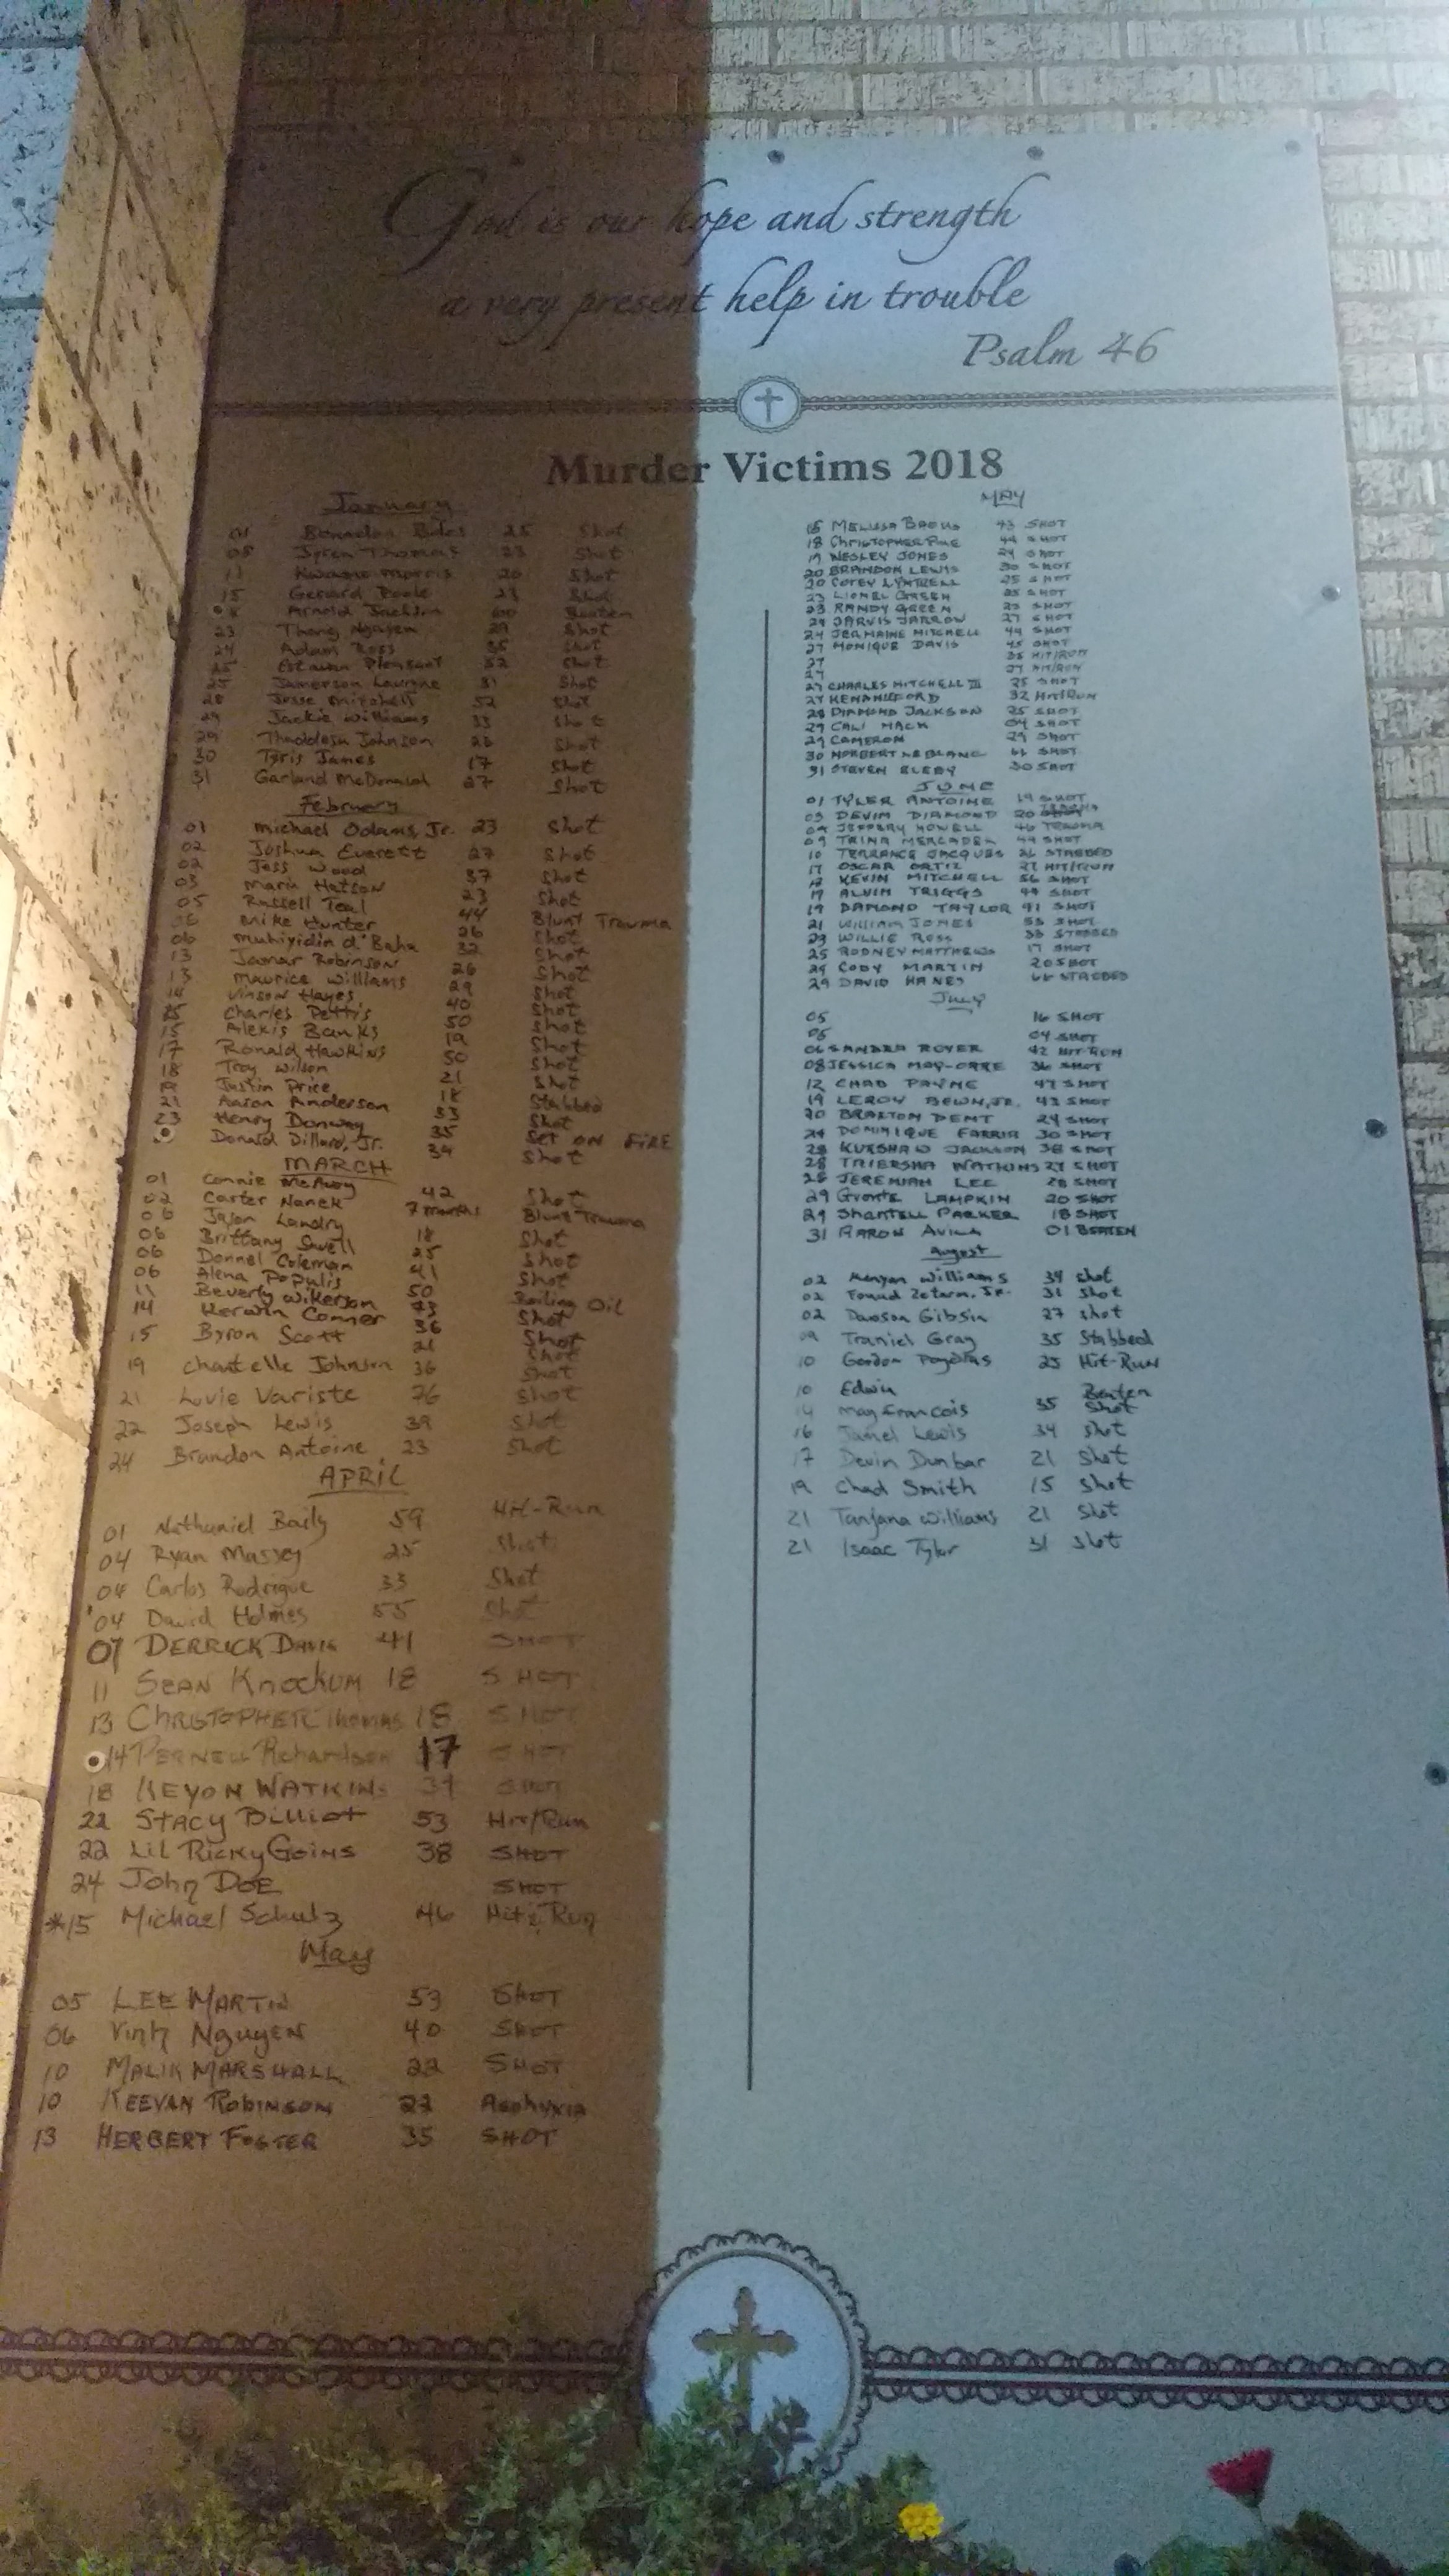 God is our hope and strength
a very present help in trouble
Psalm 46
Murder Victims 2018
January
Shot
08 Thomas 23 Shot
11 Morris 20 Shot
15 Gerard Poole 23 Shot
Arnold Jackson 60 Beaten
23 Thong Nguyen 29 Shot
24 Adam Ross 35 Shot
25 Estavan Pleasant 52 Shot
25 Jamerson Lavigne 31 Shot
28 Jesse Mitchell 52 Shot
29 Jackie Williams 33 Shot
29 Thaddesu Johnson 26 Shot
30 Tyris James 17 Shot
31 Garland McDonald 27 Shot
February
01 Michael Odams, Jr. 23 Shot
02 Joshua Everett 27 Shot
02 Jess Wood 37 Shot
03 Mario Hatson 23 Shot
05 Russell Teal 44 Blunt Trauma
06 Mike Hunter 26 Shot
06 Muhiyidin d'Baha 32 Shot
13 Jamar Robinson 26 Shot
13 Maurice Williams 29 Shot
14 Vinson Hayes 40 Shot
15 Charles Pettis 50 Shot
15 Alexis Banks 19 Shot
17 Ronald Hawkins 50 Shot
18 Troy Wilson 21 Shot
19 Justin Price 18 Stabbed
21 Aaron Anderson 33 Shot
23 Henry Donway 35 Set on FIRE
Donald Dillard, Jr. 34 Shot
MARCH
01 Connie McAvoy 42 Shot
02 Carter Nanek 7 months Blunt Trauma
06 Jason Landry 18 Shot
06 Brittany Swell 25 Shot
06 Donnel Coleman 41 Shot
06 Alena Populis 50 Boiling Oil
11 Beverly Wilkerson 73 Shot
14 Kerwin Conner 36 Shot
15 Byron Scott 21 Shot
19 Chantelle Johnson 36 Shot
21 Lovie Variste 76 Shot
22 Joseph Lewis 39 Shot
24 Brandon Antoine 23 Shot
APRIL
01 Nathaniel Baily 59 Hit-Run
04 Ryan Massey 25 Shot
04 Carlos Rodrigue 33 Shot
04 David Holmes 55 Shot
07 DERRICK DAVIS 41 SHOT
11 SEAN KnockUM 18 SHOT
13 CHRISTOPHER Thomas 18 SHOT
14 PERNELL Richardson 17 SHOT
18 KEYON WATKINS SHOT
22 STACY BILLIOT 53 Hit/Run
22 LiL RICKY GOINS 38 SHOT
24 John DOE SHOT
*15 Michael Schulz 46 Hit & Run
May
05 LEE MARTIN 53 SHOT
06 Vinh NguyEN 40 SHOT
10 MALIK MARSHALL 22 SHOT
10 KEEVAN ROBINSON 22 Asphyxia
13 HERBERT FOSTER 35 SHOT
MAY
15 MELISSA 43 SHOT
18 CHRISTOPHER 44 SHOT
19 WESLEY JONES 24 SHOT
20 BRANDON LEWIS 30 SHOT
20 COREY 25 SHOT
23 LIONEL GREEN 25 SHOT
23 RANDY GREEN 23 SHOT
24 JARVIS JARROW 27 SHOT
24 JERMAINE MITCHELL 44 SHOT
27 MONIQUE DAVIS 45 SHOT
27 HIT/RUN
27 HIT/RUN
27 CHARLES MITCHELL III 25 SHOT
27 32 HIT/RUN
28 DIAMOND JACKSON 25 SHOT
29 CALI MACK 04 SHOT
29 CAMERON 29 SHOT
30 NORBERT LEBLANC SHOT
31 STEVEN ELEBY 30 SHOT
JUNE
01 TYLER ANTOINE 19 SHOT
03 DEVIN DIAMOND 20
04 JEFFERY HOWELL 46 TRAUMA
09 TRINA MERCADEL 44 SHOT
10 TERRANCE JACQUES 26 STABBED
17 OSCAR ORTIZ 27 HIT/RUN
17 KEVIN MITCHELL 56 SHOT
17 ALVIN TRIGGS 49 SHOT
19 DAMOND TAYLOR 41 SHOT
21 WILLIAM JONES 55 SHOT
23 WILLIE ROSS 38 STABBED
25 RODNEY MATTHEWS 17 SHOT
29 CODY MARTIN 20 SHOT
29 DAVID HANES STABBED
July
05 16 SHOT
05 04 SHOT
06 SANDRA ROYER 42 HIT-RUN
08 JESSICA 36 SHOT
12 CHAD PAYNE 47 SHOT
19 LEROY 43 SHOT
20 BRAXTON DENT 24 SHOT
24 DOMINIQUE FARRIA 30 SHOT
28 KURSHAW JACKSON 38 SHOT
28 TAIERSHA WATKINS 27 SHOT
28 JEREMIAH LEE 28 SHOT
29 LAMPKIN 20 SHOT
29 Shantell PARKER 18 SHOT
31 AARON AVILA 01 BEATEN
August
02 Kenyan Williams 34 shot
02 Jr. 31 shot
02 Dawson Gibsin 27 shot
09 Traniel Gray 35 Stabbed
10 Gordon 25 Hit-Run
10 Edwin Beaten
14 May Francois 35 Shot
16 Jamel Lewis 34 Shot
17 Devin Dunbar 21 Shot
19 Chad Smith 15 Shot
21 Tanjana Williams 21 Shot
21 Isaac Tylor 31 Shot